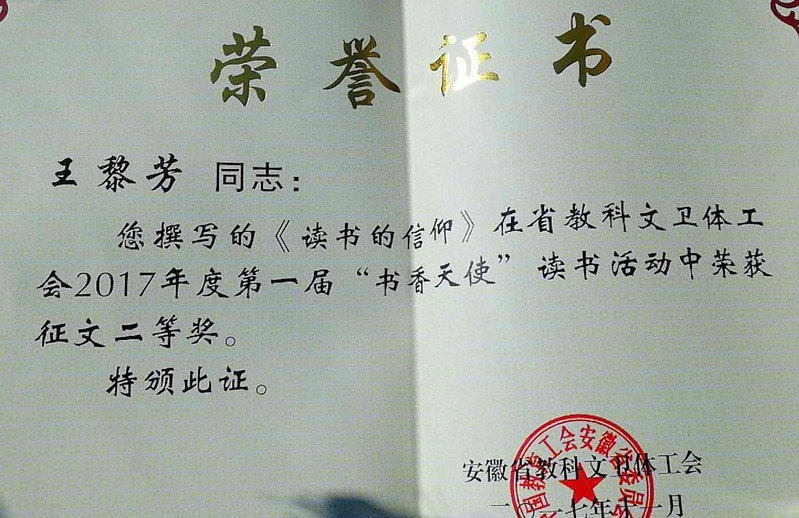 荣誉证书
王黎芳 同志：
您撰写的《读书的信仰》在省教科文卫体工
会2017年度第一届“书香天使”读书活动中荣获
征文二等奖。
特颁此证。
安徽省教科文卫体工会
一七年十一月